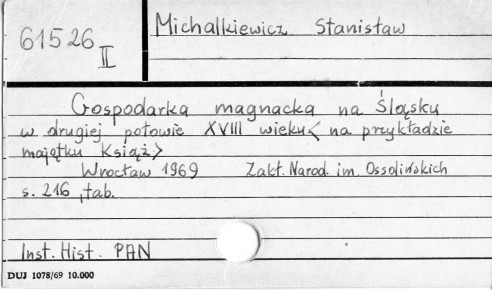 61526
II
Michalkiewicz Stanisław
Gospodarka magnacka na Śląsku
w drugiej połowie XVIII wieku < na przykładzie
majątku Książ >
Wrocław 1969 Zakł. Narod. im. Ossolińskich
s. 216, tab.
Inst. Hist. PAN
DUJ 1078/69 10.000